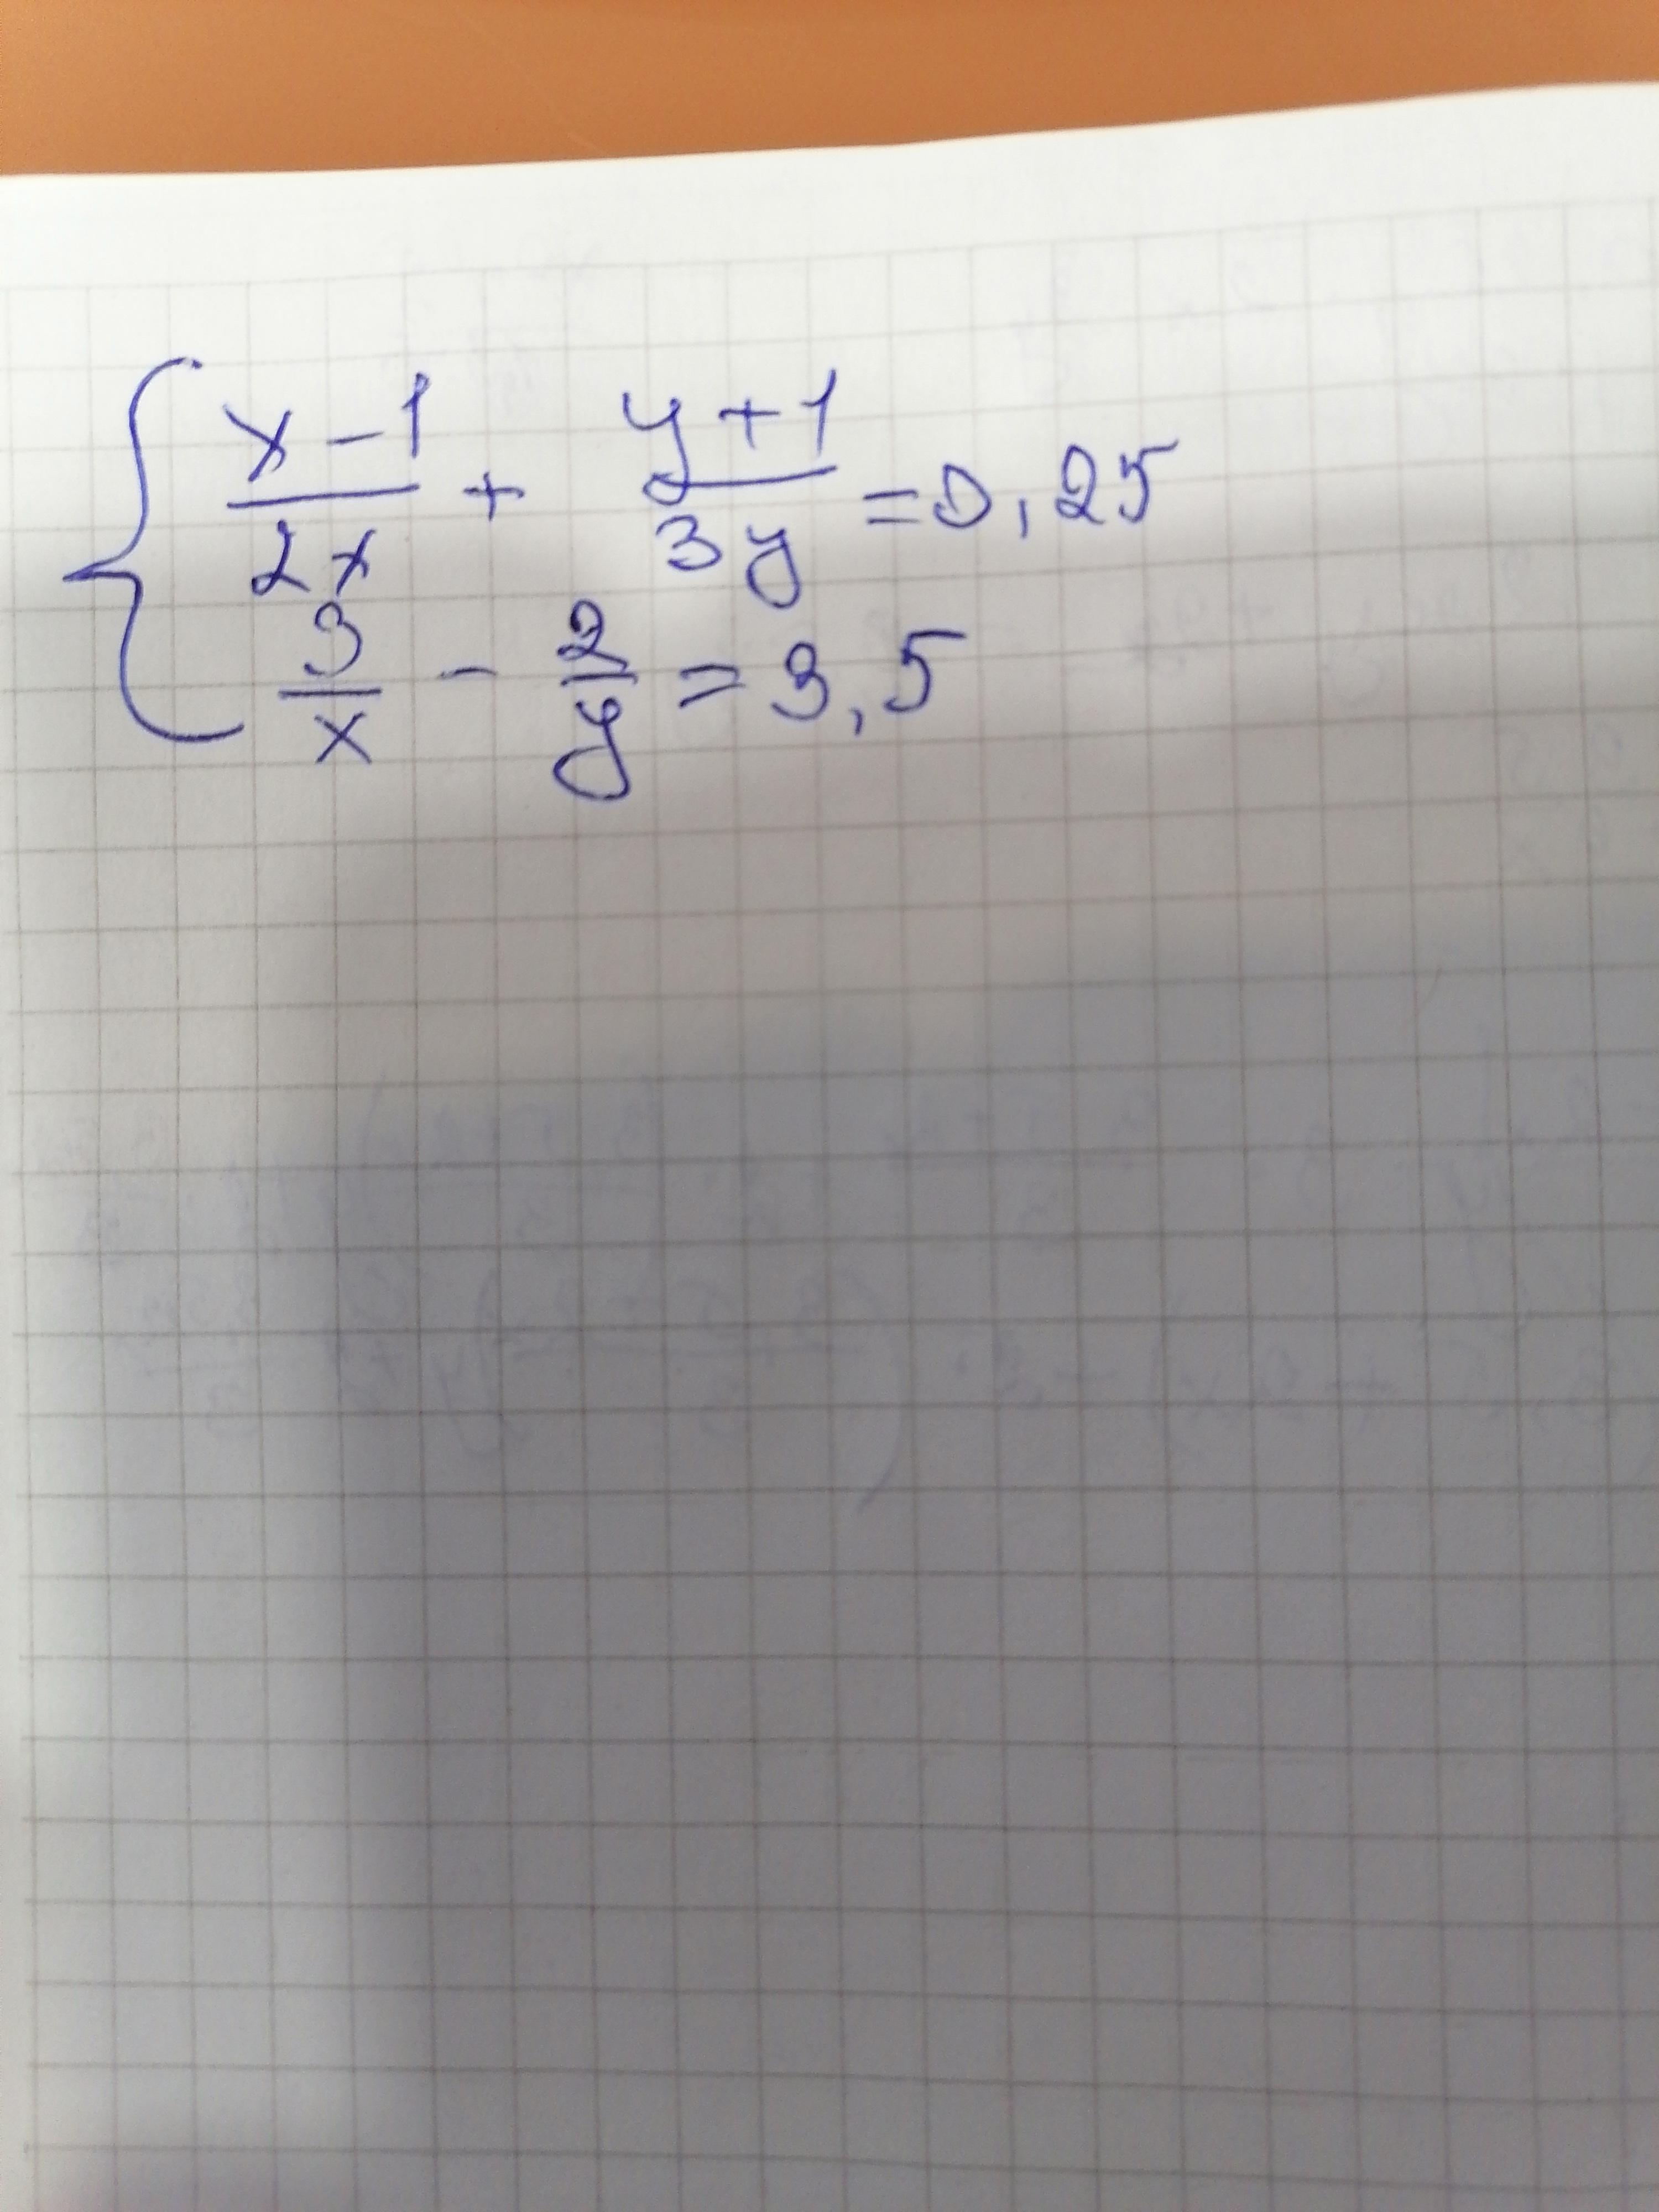 { (x-1)/(2x) + (y+1)/(3y) = 0,25
3/x - 2/y = 3,5